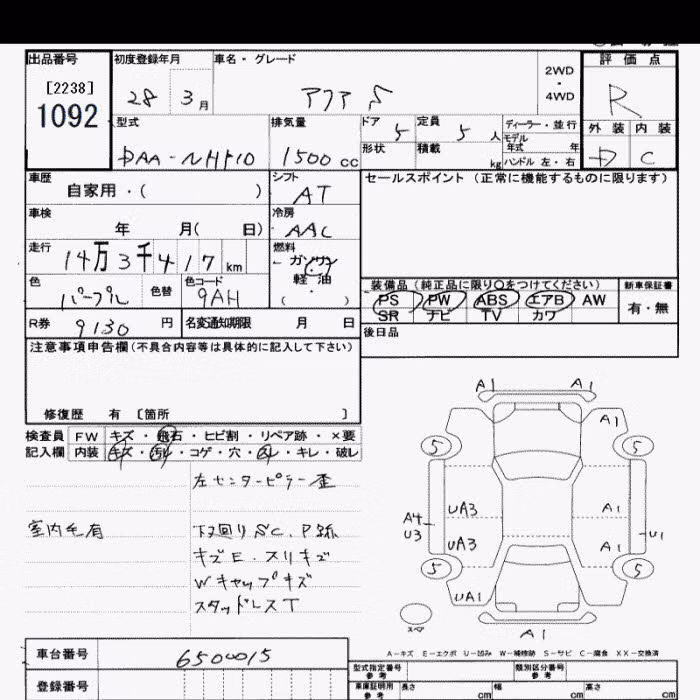 出品番号 初度登録年月 車名・グレード 評価点
[2238] 28 3月 アクア S 2WD・4WD R
1092
型式 排気量 ドア 5 定員 5人 ディーラー・並行 外装 内装
DAA-NHP10 1500cc 形状 積載 kg モデル年式 年 D C
ハンドル 左・右
車歴 シフト セールスポイント(正常に機能するものに限ります)
自家用・( ) AT
車検 冷房
年 月( 日) AAC
走行 燃料
14万3千417km ガソリン
色 色替 色コード 軽油
パープル 9AH ( )
装備品(純正品に限り○をつけてください) 新車保証書
PS PW ABS エアB AW 有・無
SR ナビ TV カワ
R券 9130円 名変通知期限 月 日
後日品
注意事項申告欄(不具合内容等は具体的に記入して下さい)
修復歴 有 〔箇所 〕
検査員 FW キズ・飛石・ヒビ割・リペア跡・×要
記入欄 内装 キズ・汚レ・コゲ・穴・スレ・キレ・破レ
左センターピラー歪
室内毛有 下廻りSC.P跡
キズE.スリキズ
Wキャップキズ
スタッドレスT
A1 A1
A1
5 5
A4 UA3 A1
U3 U1
UA3 A1
5 5
UA1
スペア A1
A-キズ E-エクボ U-凹み W-補修跡 S-サビ C-腐食 XX-交換済
車台番号 6500015
型式指定番号 参考 類別区分番号 参考
登録番号
車庫証明用 参考 長さ cm 幅 cm 高さ cm